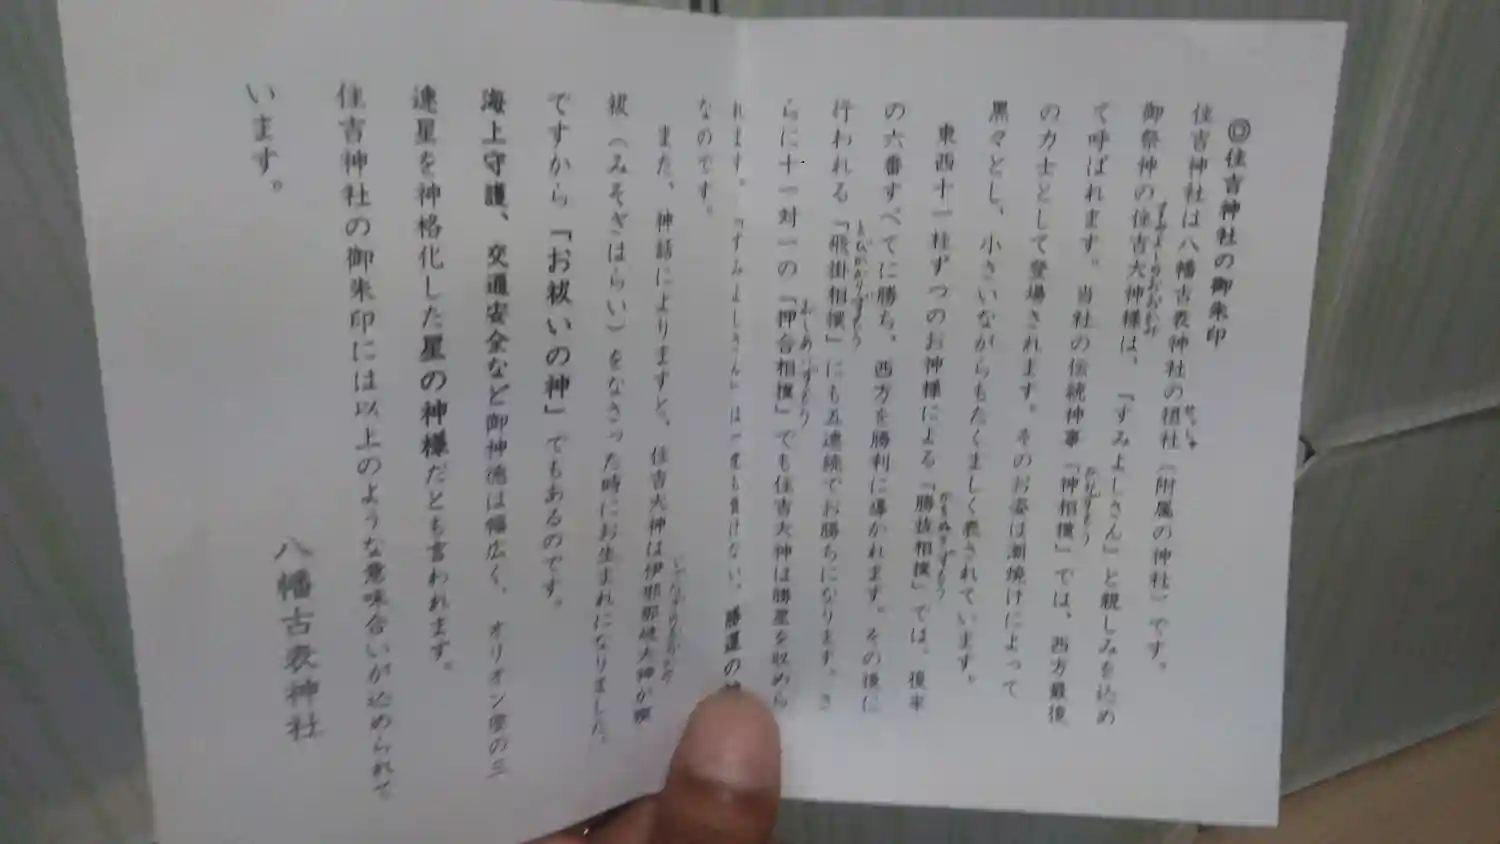 ◎住吉神社の御朱印
住吉神社は八幡古表神社の摂社（附属の神社）です。
御祭神の住吉大神様は、「すみよしさん」と親しみを込め
て呼ばれます。当社の伝統神事「神相撲」では、西方最後
の力士として登場されます。そのお姿は潮焼けによって
黒々とし、小さいながらもたくましく表されています。
東西十一柱ずつのお神様による「勝抜相撲」では、後半
の六番すべてに勝ち、西方を勝利に導かれます。その後に
行われる「飛掛相撲」にも五連続でお勝ちになります。さ
らに十一対一の「押合相撲」でも住吉大神は勝星を収めら
れます。「すみよしさん」は一度も負けない、勝運の
なのです。
また、神話によりますと、住吉大神は伊邪那岐大神が禊
祓（みそぎはらい）をなさった時にお生まれになりました。
ですから「お祓いの神」でもあるのです。
海上守護、交通安全など御神徳は幅広く、オリオン座の三
連星を神格化した星の神様だとも言われます。
住吉神社の御朱印には以上のような意味合いが込められて
います。
八幡古表神社